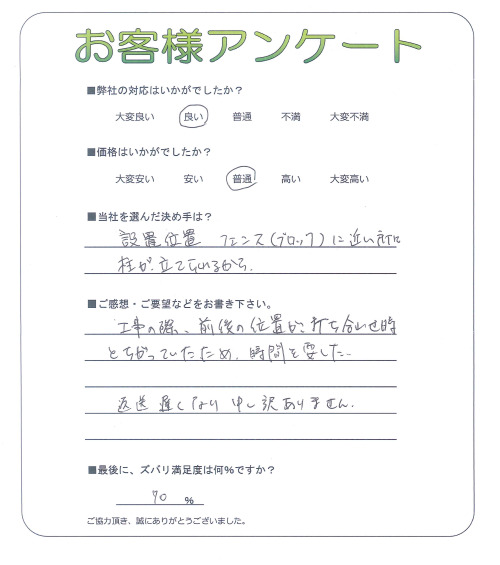 お客様アンケート
■弊社の対応はいかがでしたか？
大変良い 良い 普通 不満 大変不満
■価格はいかがでしたか？
大変安い 安い 普通 高い 大変高い
■当社を選んだ決め手は？
設置位置 フェンス(ブロック)に近い所に
柱が立てれるから.
■ご感想・ご要望などをお書き下さい。
工事の際、前後の位置が打ち合わせ時
とちがっていたため、時間を要した.
返送遅くなり申し訳ありません.
■最後に、ズバリ満足度は何%ですか？
70 %
ご協力頂き、誠にありがとうございました。